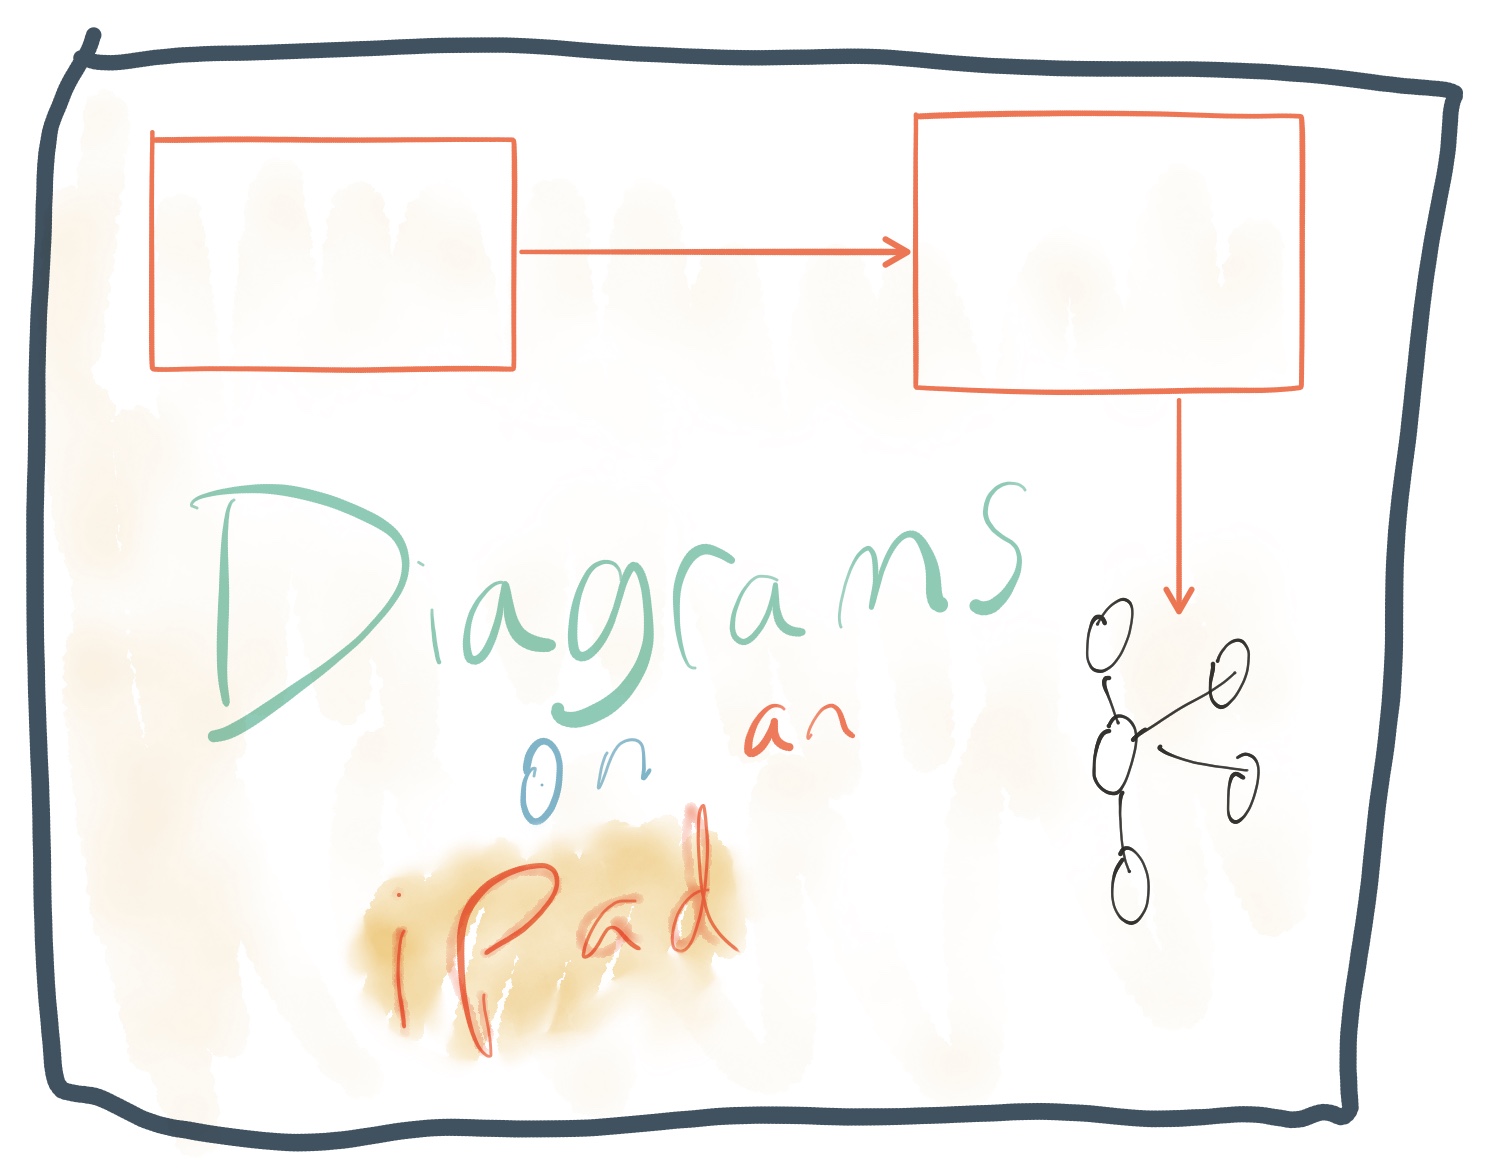 Diagrams
on an
iPad